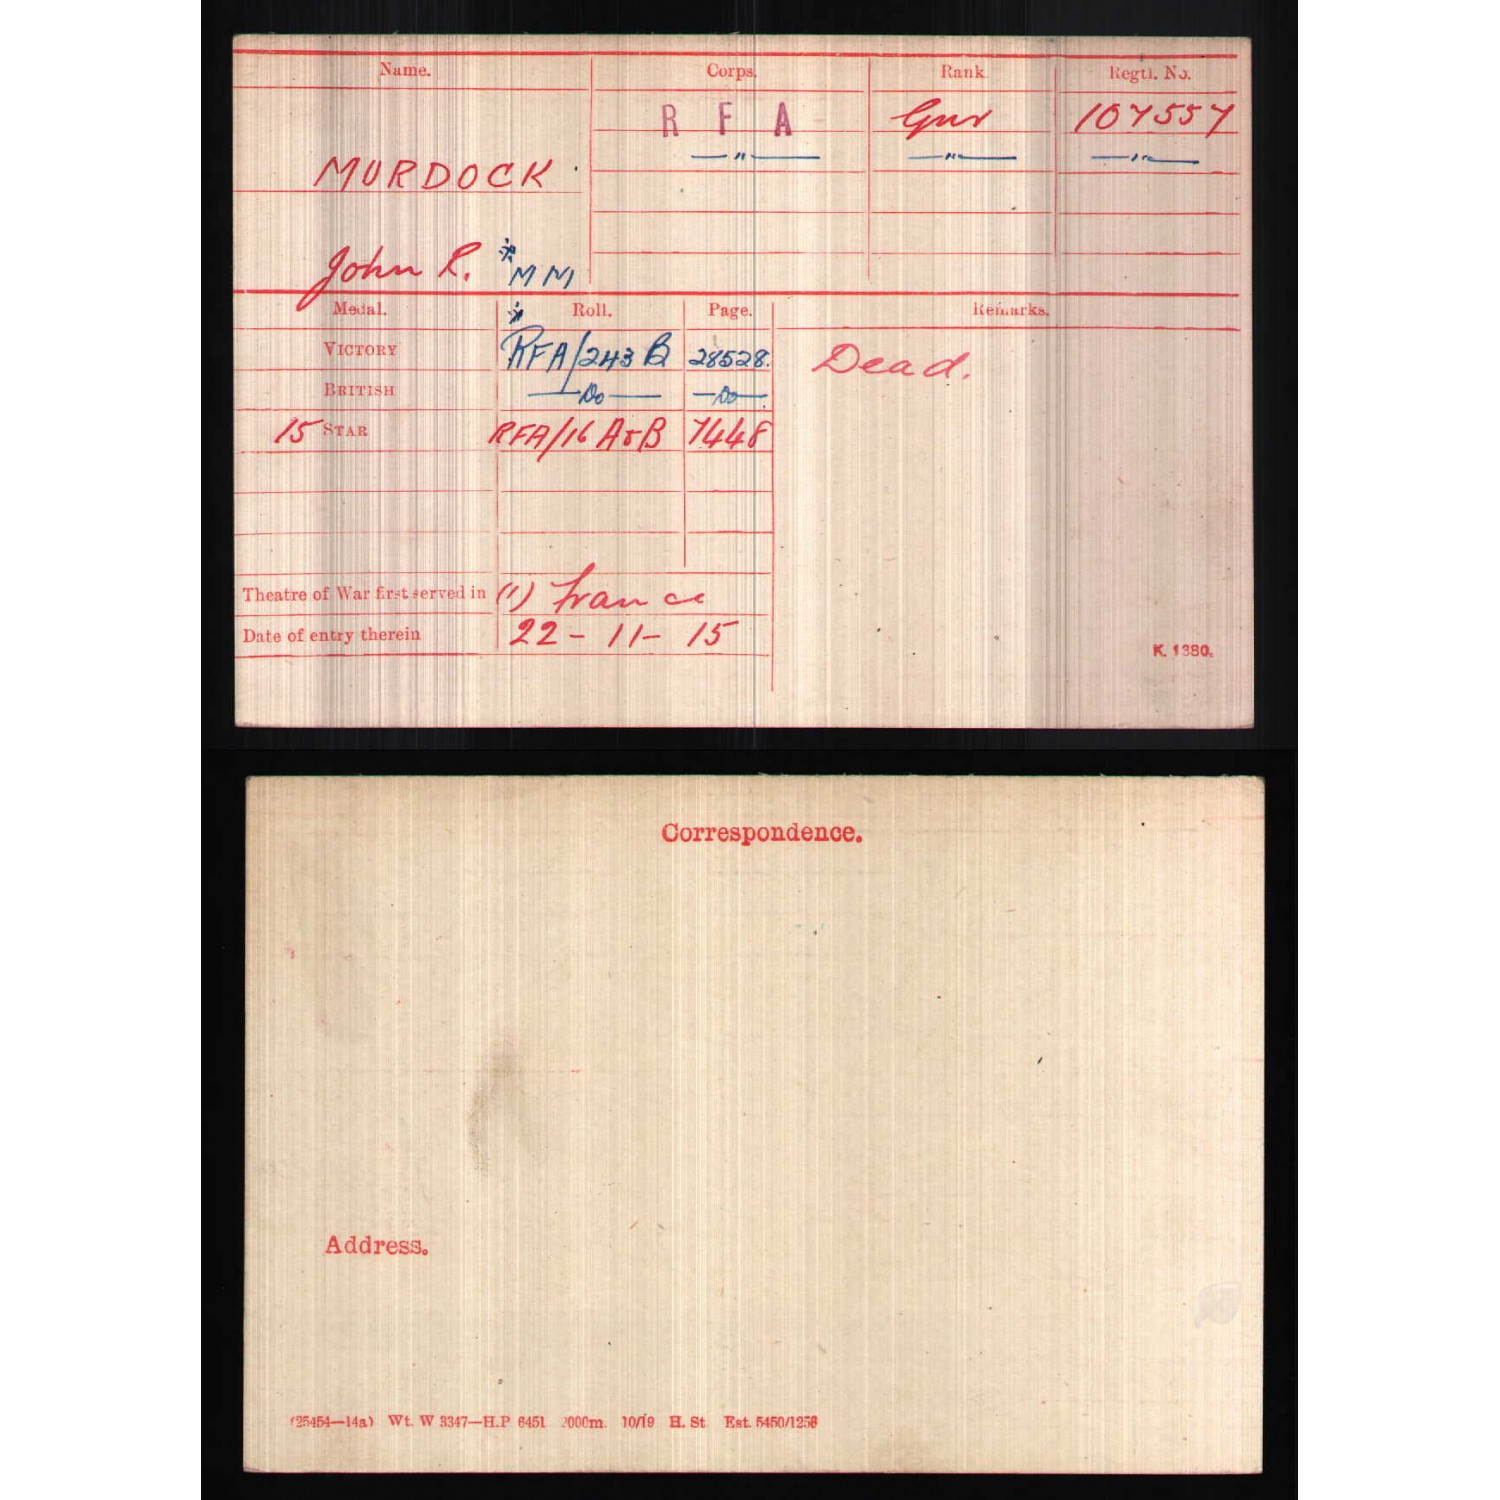 Name. Corps. Rank Regtl. No.
R F A Gnr 107557
— " — — " — — " —
MURDOCK
John R. * MM
Medal. * Roll. Page. Remarks.
VICTORY RFA/243 B 28528. Dead.
BRITISH — Do — — Do —
15 STAR RFA/16 A&B 7448
Theatre of War first served in (1) France
Date of entry therein 22 - 11 - 15
K. 1380.
Correspondence.
Address.
(25454—14a) Wt. W 3347—H.P 6451 2000m. 10/19 H. St. Est. 5450/1256